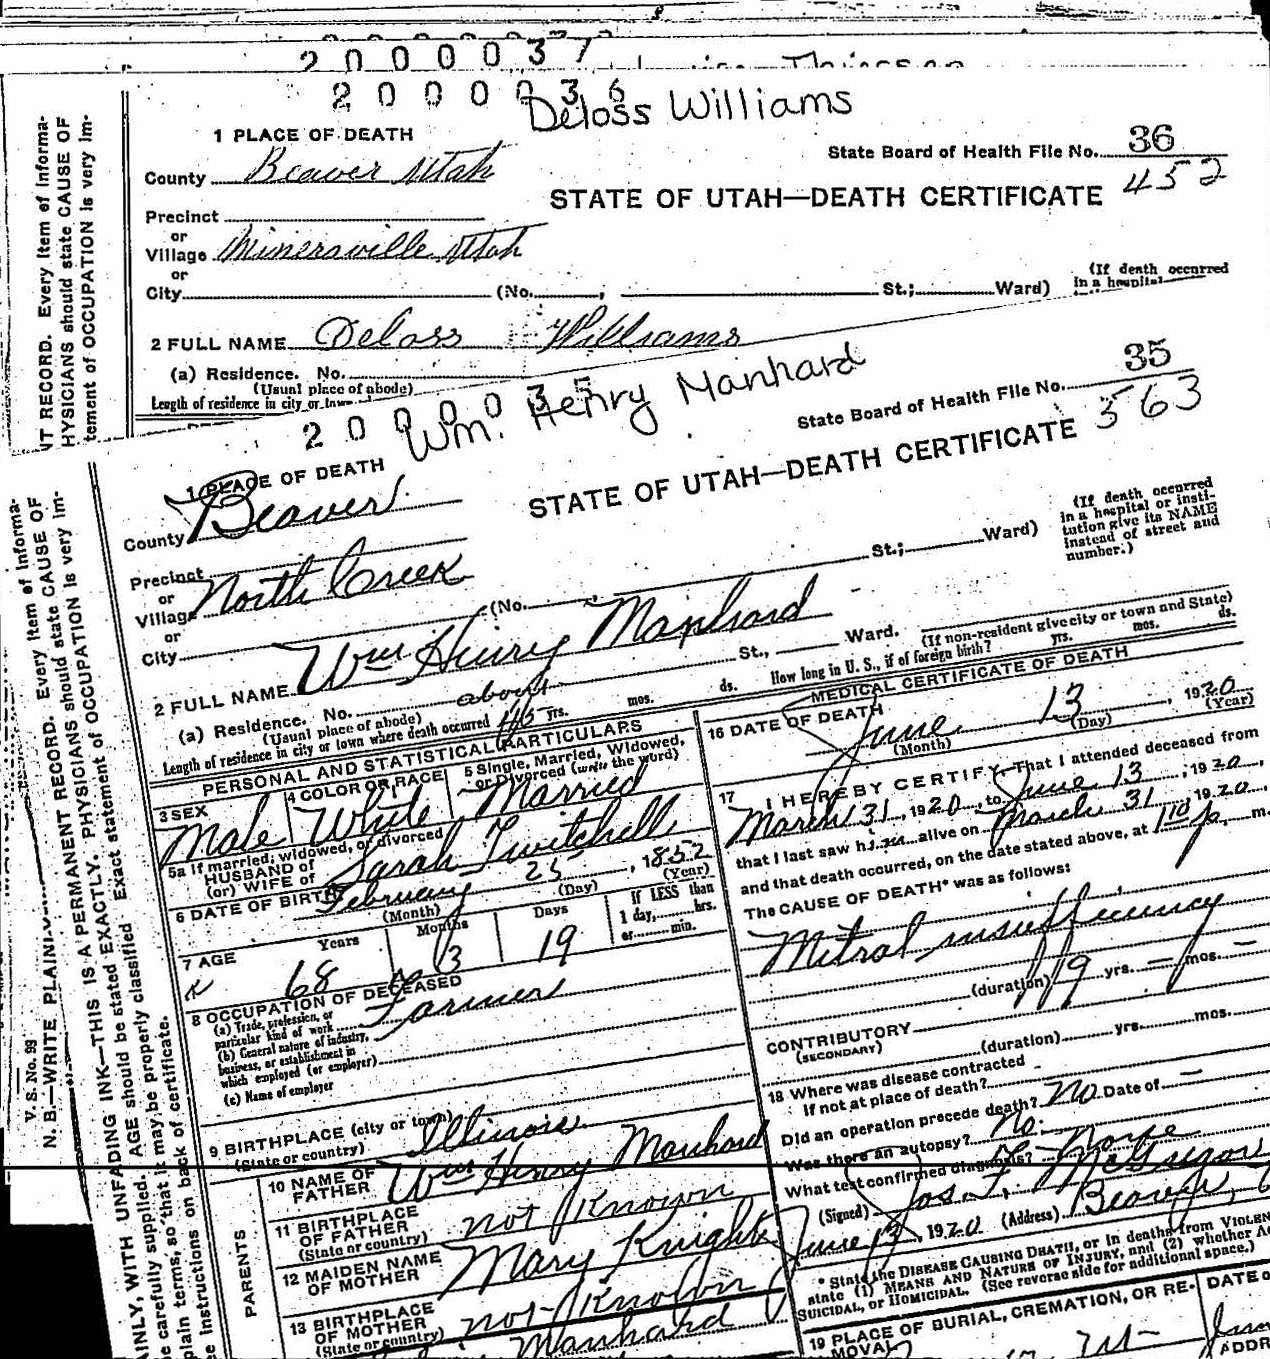 20000037
20000036
Deloss Williams
1 PLACE OF DEATH
State Board of Health File No. 36
County Beaver Utah
STATE OF UTAH—DEATH CERTIFICATE 452
Precinct
or
Village Minersville Utah
or
City (No. , St.; Ward) (If death occurred
in a hospital
2 FULL NAME Deloss Williams
(a) Residence. No.
(Usual place of abode)
Length of residence in city or town
NT RECORD. Every item of informa-
HYSICIANS should state CAUSE OF
tement of OCCUPATION is very im-
2000035
Wm. Henry Manhard
State Board of Health File No. 35
1 PLACE OF DEATH
STATE OF UTAH—DEATH CERTIFICATE 563
County Beaver
Precinct
or
Village North Creek
or
City (No. , St.; Ward) (If death occurred
in a hospital or insti-
tution give its NAME
instead of street and
number.)
2 FULL NAME Wm Henry Manhard
(a) Residence. No. St., Ward.
(Usual place of abode) (If non-resident give city or town and State)
Length of residence in city or town where death occurred about 45 yrs. mos. ds. How long in U. S., if of foreign birth? yrs. mos. ds.
PERSONAL AND STATISTICAL PARTICULARS
3 SEX
Male
4 COLOR OR RACE
White
5 Single, Married, Widowed,
or Divorced (write the word)
Married
5a If married, widowed, or divorced
HUSBAND OF
(or) WIFE of Sarah Twitchell
6 DATE OF BIRTH February 25, 1852
(Month) (Day) (Year)
7 AGE Years Months Days If LESS than
1 day, hrs.
or min.
68 3 19
8 OCCUPATION OF DECEASED
(a) Trade, profession, or
particular kind of work Farmer
(b) General nature of industry,
business, or establishment in
which employed (or employer)
(c) Name of employer
9 BIRTHPLACE (city or town)
(State or country) Illinois
PARENTS
10 NAME OF
FATHER Wm Henry Manhard
11 BIRTHPLACE
OF FATHER
(State or country) not Known
12 MAIDEN NAME
OF MOTHER Mary Knight
13 BIRTHPLACE
OF MOTHER
(State or country) not Known
Manhard
MEDICAL CERTIFICATE OF DEATH
16 DATE OF DEATH
June 13, 1920
(Month) (Day) (Year)
17 I HEREBY CERTIFY, That I attended deceased from
March 31, 1920, to June 13, 1920,
that I last saw him alive on March 31, 1920,
and that death occurred, on the date stated above, at 1 10 p m.
The CAUSE OF DEATH* was as follows:
Mitral insufficiency
(duration) 19 yrs. — mos. —
CONTRIBUTORY
(SECONDARY)
(duration) yrs. mos.
18 Where was disease contracted
if not at place of death?
Did an operation precede death? No Date of —
Was there an autopsy? No.
What test confirmed diagnosis?
(Signed) Jos. T. McGregor
June 13, 1920 (Address) Beaver,
* State the DISEASE CAUSING DEATH, or in deaths from VIOLEN
state (1) MEANS AND NATURE OF INJURY, and (2) whether Ac
SUICIDAL, or HOMICIDAL. (See reverse side for additional space.)
19 PLACE OF BURIAL, CREMATION, OR RE-
MOVAL
DATE
ADDR
V. S. No. 99
N. B.—WRITE PLAINLY
AINLY, WITH UNFADING INK—THIS IS A PERMANENT RECORD. Every item of informa-
e carefully supplied. AGE should be stated EXACTLY. PHYSICIANS should state CAUSE OF
plain terms, so that it may be properly classified. Exact statement of OCCUPATION is very im-
e instructions on back of certificate.